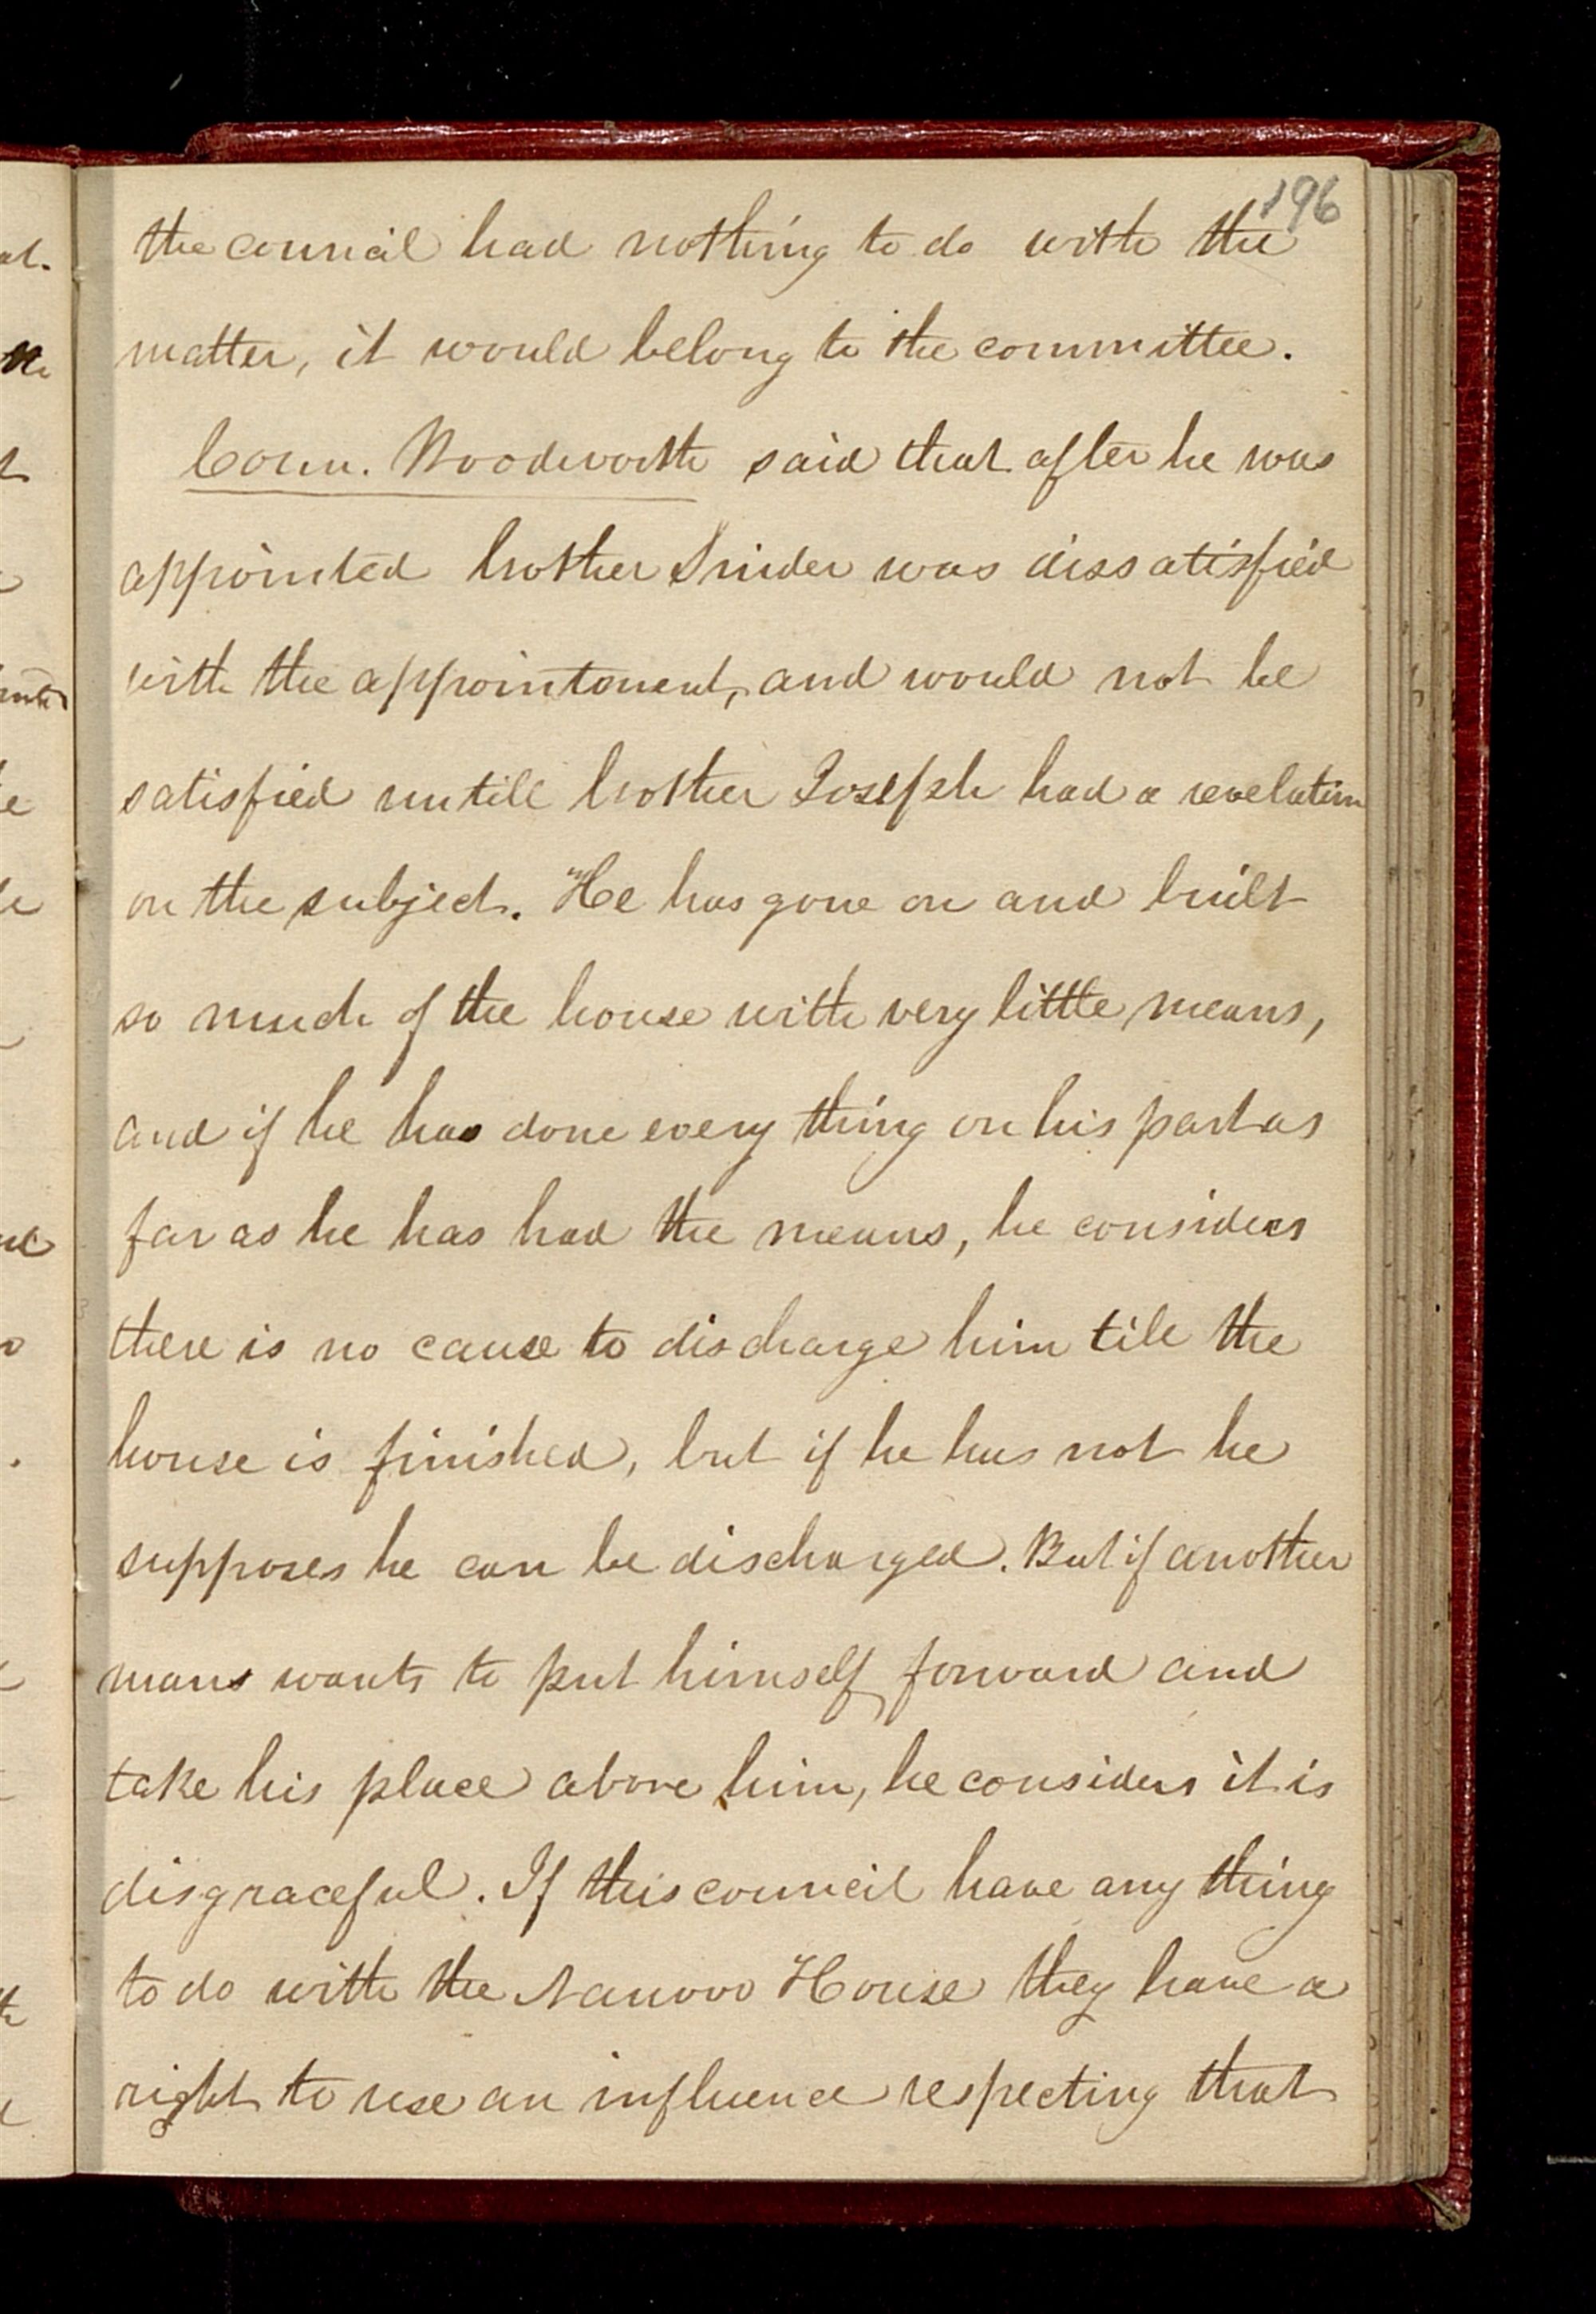 196
the council had nothing to do with the
matter, it would belong to the committee.
Coun. Woodworth said that after he was
appointed brother Snider was dissatisfied
with the appointment, and would not be
satisfied untill brother Joseph had a revelation
on the subject. He has gone on and built
so much of the house with very little means,
and if he has done every thing on his part as
far as he has had the means, he considers
there is no cause to discharge him till the
house is finished, but if he has not he
supposes he can be discharged. But if another
mans wants to put himself forward and
take his place above him, he considers it is
disgraceful. If this council have any thing
to do with the Nauvoo House they have a
right to use an influence respecting that